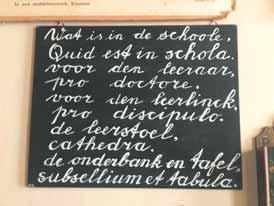 In een middeleeuwsch klooster
Wat is in de schoole,
Quid est in schola.
voor den leeraar,
pro doctore.
voor den leerlinck,
pro discipulo.
de leerstoel,
cathedra.
de onderbank en tafel,
subsellium et tabula.